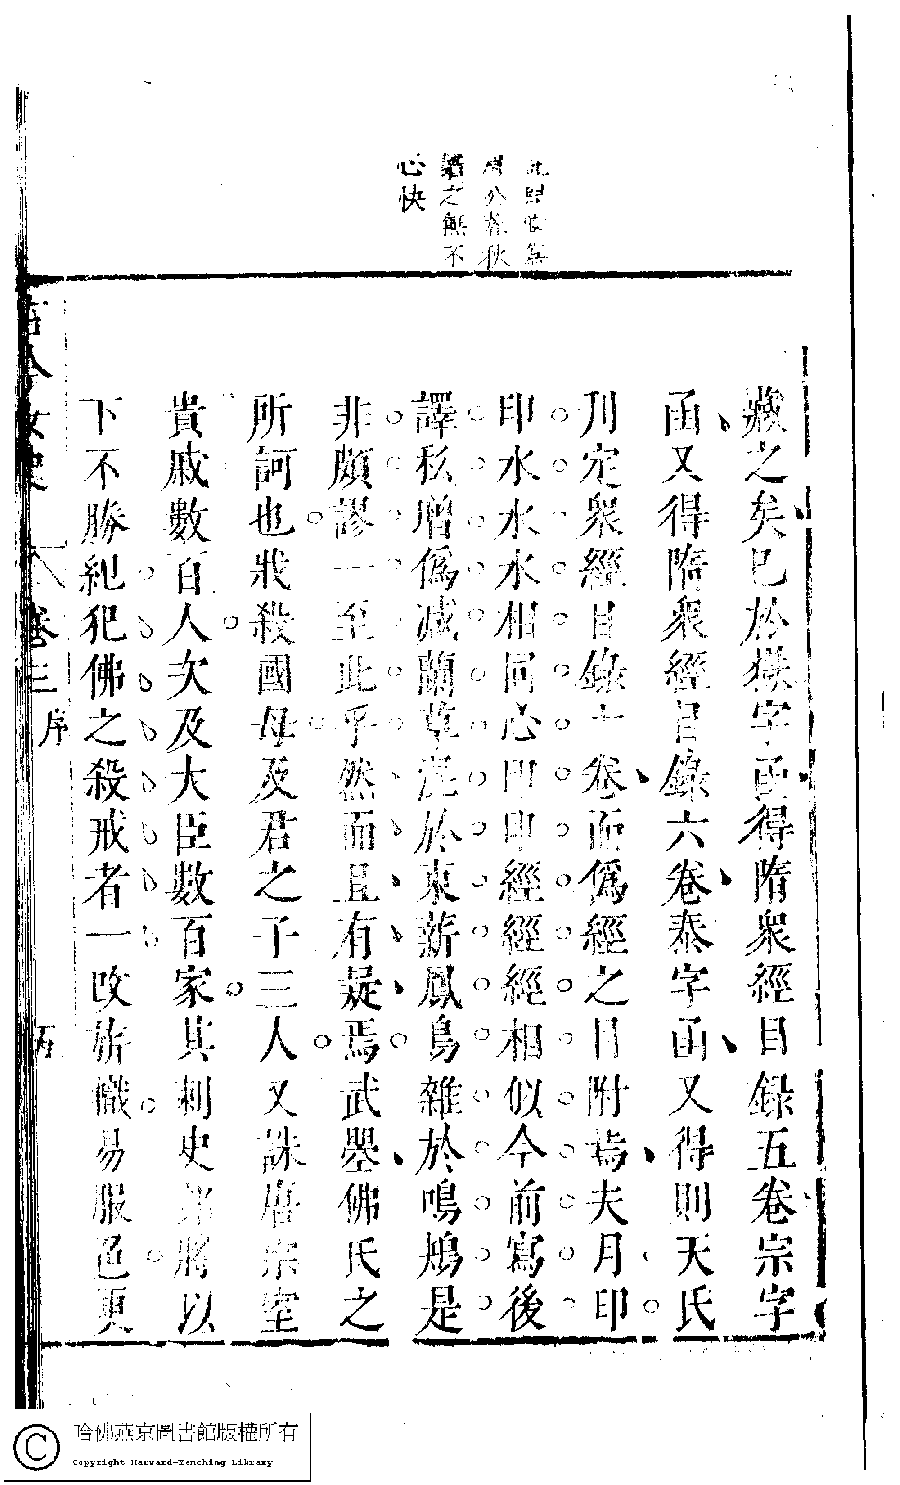 心快
藏之矣已於漢字函得隋衆經目錄五卷宗字
函又得隋衆經目錄六卷泰字函又得則天氏
刋定衆經目錄十卷而偽經之目附焉夫月印
印水水水相同心印印經經經相似今前寫後
譯私增偽減蘭草混於束薪鳳鳥雜於鳴鴂是
非頗謬一至此乎然而且有疑焉武曌佛氏之
所訶也戕殺國母及君之子三人又誅唐宗室
貴戚數百人次及大臣數百家其刺史郎將以
下不勝紀犯佛之殺戒者一改旂幟易服色更
古今女史 卷三 序 五
哈佛燕京圖書館版權所有
Copyright Harvard-Yenching Library